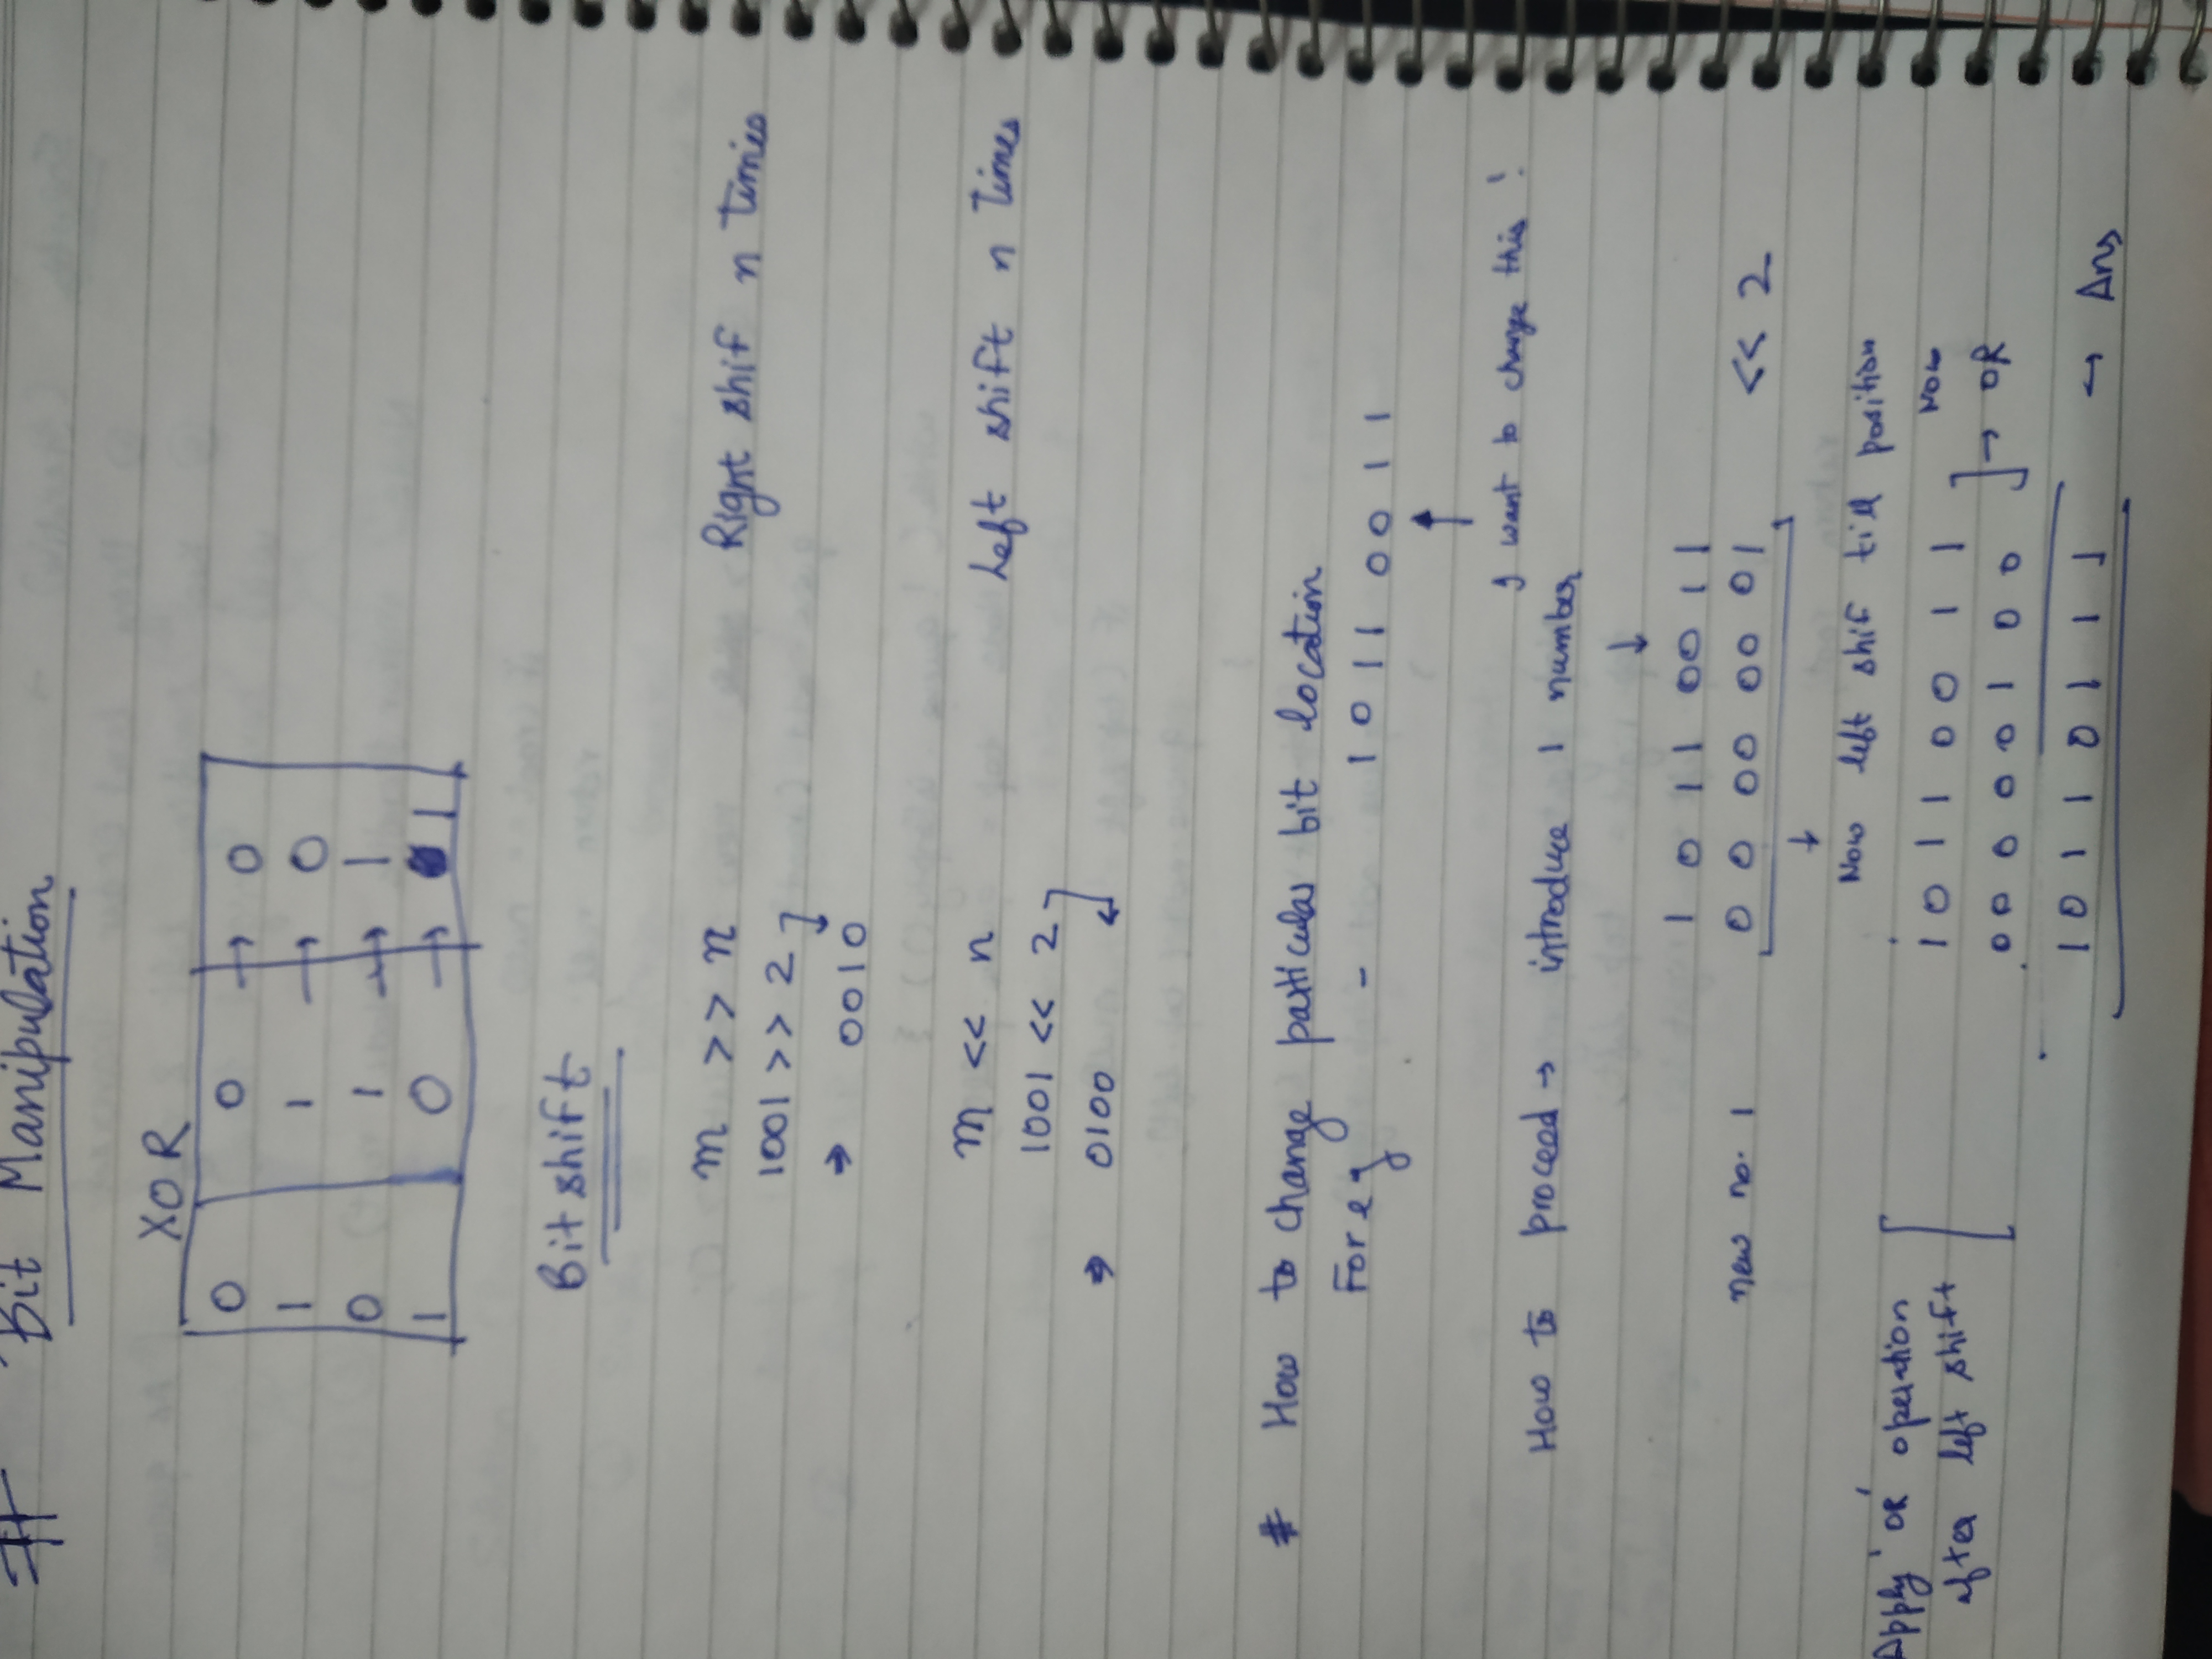 # Bit Manipulation
XOR
0 0 → 0
1 1 → 0
0 1 → 1
1 0 → 1
Bit shift
m >> n Right shif n times
1001 >> 2
→ 0010
m << n Left shift n times
1001 << 2
→ 0100
# How to change particular bit location
For eg - 1 0 1 1 0 0 1 1
I want to change this !
How to proceed → introduce 1 number
↓
1 0 1 1 0 0 1 1
new no. 1 0 0 0 0 0 0 0 1 << 2
↓
Now left shif till position
Apply 'OR' operation
after left shift
1 0 1 1 0 0 1 1 Now
0 0 0 0 0 1 0 0 → OR
1 0 1 1 0 1 1 1 → Ans